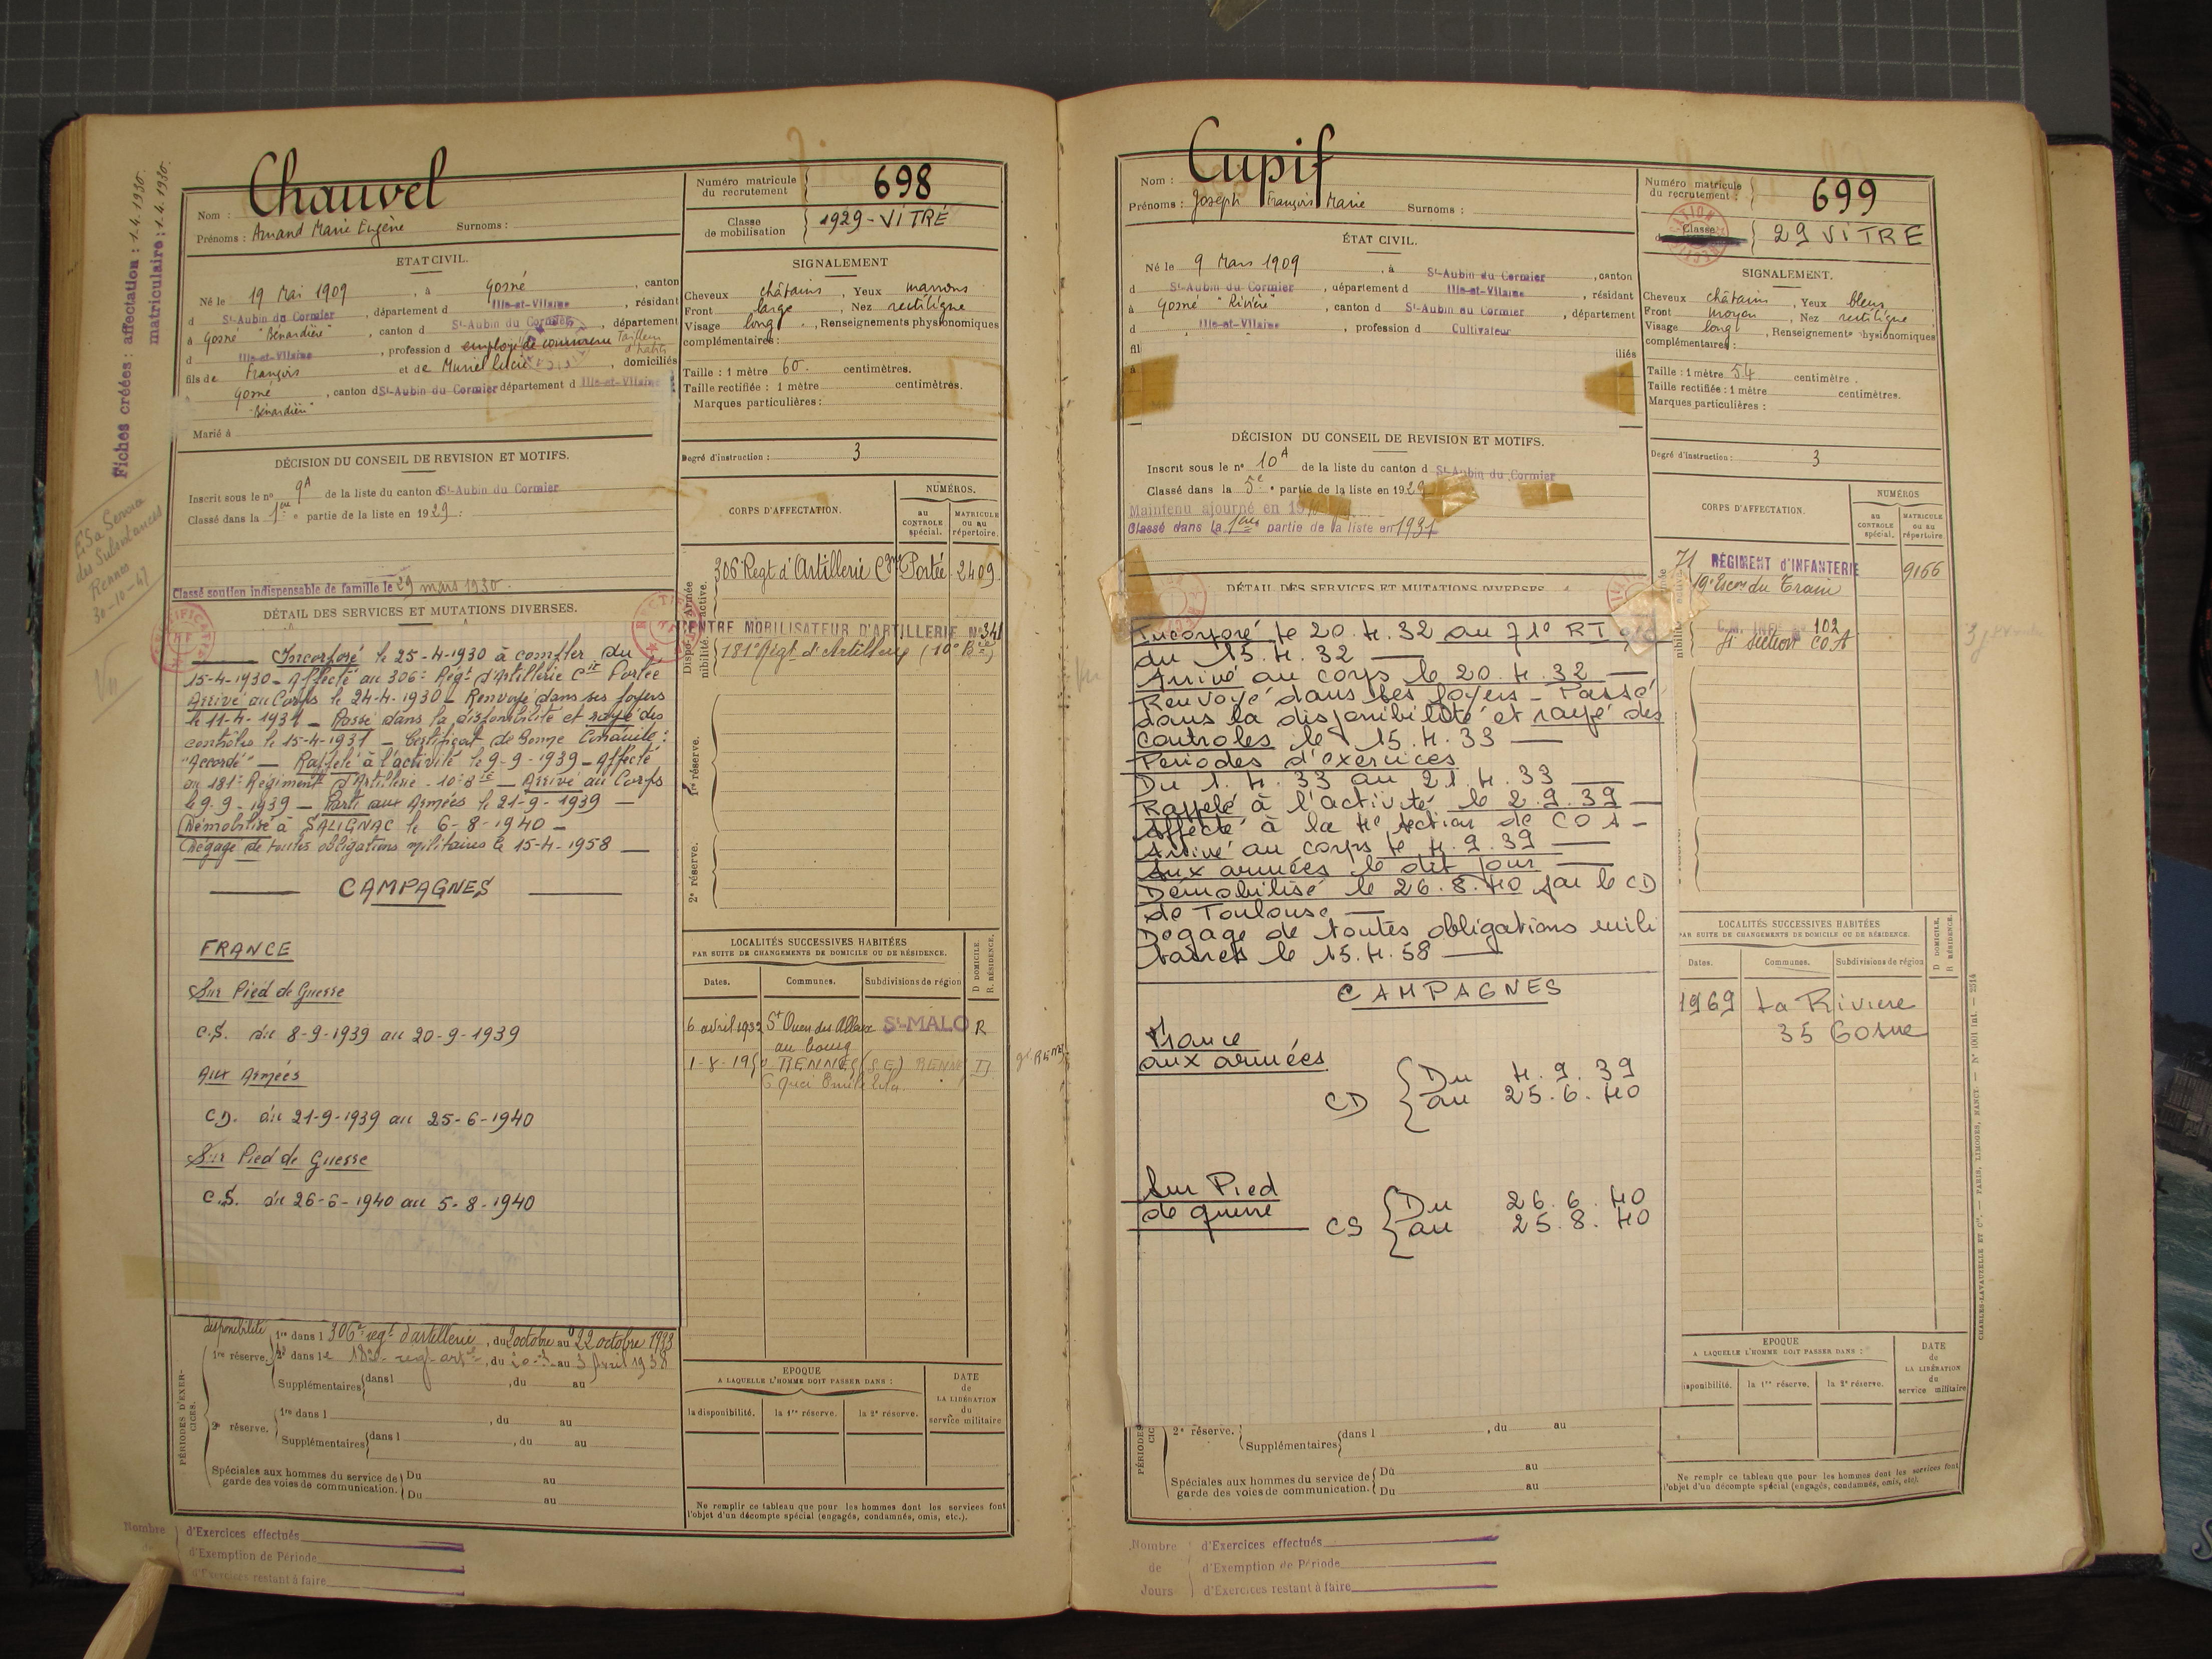 Fiches créées : affectation : 1.4.1930.
matriculaire : 1.4.1930.
Chauvel
Nom :
Prénoms : Amand Marie Eugène Surnoms :
ETAT CIVIL.
Né le 19 Mai 1909, à Gosné, canton
d St-Aubin du Cormier, département d Ille-et-Vilaine, résidant
à Gosné "Bénardière", canton d St-Aubin du Cormier, département
d Ille-et-Vilaine, profession d employé de couvreur Tailleur d'habits
fils de François et de Muriel Lucie domiciliés
à Gosné, canton d St-Aubin du Cormier département d Ille-et-Vilaine
"Bénardière"
Marié à
DÉCISION DU CONSEIL DE REVISION ET MOTIFS.
Inscrit sous le no 9A de la liste du canton d St-Aubin du Cormier
Classé dans la 1ère partie de la liste en 1929.
Classé soutien indispensable de famille le 29 mars 1930.
DÉTAIL DES SERVICES ET MUTATIONS DIVERSES.
Incorporé le 25-4-1930 à compter du
15-4-1930 - Affecté au 306e Régt d'Artillerie Cie Portée
Arrivé au Corps le 24-4-1930 - Renvoyé dans ses foyers
le 11-4-1931 - Passé dans la disponibilité et rayé des
contrôles le 15-4-1931 - Certificat de Bonne Conduite :
"Accordé" - Rappelé à l'activité le 9-9-1939 - Affecté
au 181e Régiment d'Artillerie - 10e Bie - Arrivé au Corps
le 9.9-1939 - Parti aux Armées le 21-9-1939 -
Démobilisé à SALIGNAC le 6-8-1940 -
Dégagé de toutes obligations militaires le 15-4-1958 -
CAMPAGNES
FRANCE
Sur Pied de Guerre
C.S. du 8-9-1939 au 20-9-1939
Aux Armées
CD. du 21-9-1939 au 25-6-1940
Sur Pied de Guerre
C.S. du 26-6-1940 au 5-8-1940
PÉRIODES D'EXERCICES.
disponibilité
1re réserve.
1re dans l 306e regt d'artillerie, du 2 octobre au 22 octobre 1933
2e dans le au 3 avril 1938
Supplémentaires dans l , du au
2e réserve.
1re dans l , du au
Supplémentaires dans l , du au
Spéciales aux hommes du service de garde des voies de communication.
Du au
Du au
Nombre de
d'Exercices effectués
d'Exemption de Période
d'Exercices restant à faire
Numéro matricule du recrutement 698
Classe de mobilisation 1929 - VITRÉ
SIGNALEMENT
Cheveux châtains, Yeux marrons
Front large, Nez rectiligne
Visage long, Renseignements physionomiques
complémentaires :
Taille : 1 mètre 60. centimètres.
Taille rectifiée : 1 mètre centimètres.
Marques particulières :
Degré d'instruction : 3
CORPS D'AFFECTATION.
NUMÉROS.
AU CONTROLE spécial.
MATRICULE ou au répertoire.
Disponibilité. Armée active.
306 Regt d'Artillerie Cie Portée 2409
CENTRE MOBILISATEUR D'ARTILLERIE No 341
181e Régt d'Artillerie (10e Bie)
1re réserve.
2e réserve.
LOCALITÉS SUCCESSIVES HABITÉES
PAR SUITE DE CHANGEMENTS DE DOMICILE OU DE RÉSIDENCE.
D DOMICILE. R. RÉSIDENCE.
Dates. Communes. Subdivisions de région
6 avril 1932 St Ouen des Alleux St-MALO R
au bourg
1-8-1950 RENNES (S.E) RENNES D
6 quai Emile Zola
EPOQUE
A LAQUELLE L'HOMME DOIT PASSER DANS :
DATE de LA LIBÉRATION du service militaire
la disponibilité. la 1re réserve. la 2e réserve.
Ne remplir ce tableau que pour les hommes dont les services font
l'objet d'un décompte spécial (engagés, condamnés, omis, etc.).
Cupif
Nom :
Prénoms : Joseph François Marie Surnoms :
ÉTAT CIVIL.
Né le 9 Mars 1909, à St-Aubin du Cormier, canton
d St-Aubin du Cormier, département d Ille-et-Vilaine, résidant
à Gosné "Rivière", canton d St-Aubin du Cormier, département
d Ille-et-Vilaine, profession d Cultivateur
fil iliés
à
DÉCISION DU CONSEIL DE REVISION ET MOTIFS.
Inscrit sous le no 10A de la liste du canton d St-Aubin du Cormier
Classé dans la 5e partie de la liste en 1929
Maintenu ajourné en 19
Classé dans la 1ère partie de la liste en 1931
DÉTAIL DES SERVICES ET MUTATIONS DIVERSES.
Incorporé le 20.4.32 au 71e RI
du 15.4.32
Arrivé au corps le 20.4.32
Renvoyé dans ses foyers - Passé
dans la disponibilité et rayé des
controles le 15.4.33
Periodes d'exercices
Du 1.4.33 au 21.4.33
Rappelé à l'activité le 2.9.39
Affecté à la 4e section de COA -
Arrivé au corps le 4.9.39
Aux armées le dit jour
Démobilisé le 26.8.40 par le CD
de Toulouse
Dégagé de toutes obligations mili
taires le 15.4.58
CAMPAGNES
France
aux armées
CD Du 4.9.39
au 25.6.40
Sur Pied
de guerre
CS Du 26.6.40
au 25.8.40
PÉRIODES
2e réserve.
Supplémentaires dans l , du au
Spéciales aux hommes du service de garde des voies de communication.
Du au
Du au
Nombre de Jours
d'Exercices effectués
d'Exemption de Période
d'Exercices restant à faire
Numéro matricule du recrutement : 699
Classe 29 VITRE
SIGNALEMENT.
Cheveux châtains, Yeux bleus
Front moyen, Nez rectiligne
Visage long, Renseignements physionomiques
complémentaires :
Taille : 1 mètre 54 centimètre.
Taille rectifiée : 1 mètre centimètres.
Marques particulières :
Degré d'instruction : 3
CORPS D'AFFECTATION.
NUMÉROS
AU CONTROLE spécial.
MATRICULE ou au répertoire.
71 RÉGIMENT D'INFANTERIE 9166
19e Escon du Train
102
4e section COA
LOCALITÉS SUCCESSIVES HABITÉES
PAR SUITE DE CHANGEMENTS DE DOMICILE OU DE RÉSIDENCE.
D DOMICILE. R RÉSIDENCE.
Dates. Communes. Subdivisions de région
1969 La Riviere
35 Gosne
EPOQUE
A LAQUELLE L'HOMME DOIT PASSER DANS :
DATE de LA LIBÉRATION du service militaire
isponibilité. la 1re réserve. la 2e réserve.
Ne remplir ce tableau que pour les hommes dont les services font
l'objet d'un décompte spécial (engagés, condamnés, omis, etc).
CHARLES-LAVAUZELLE ET Cie. — PARIS, LIMOGES, NANCY. — No 1001 int. — 2514